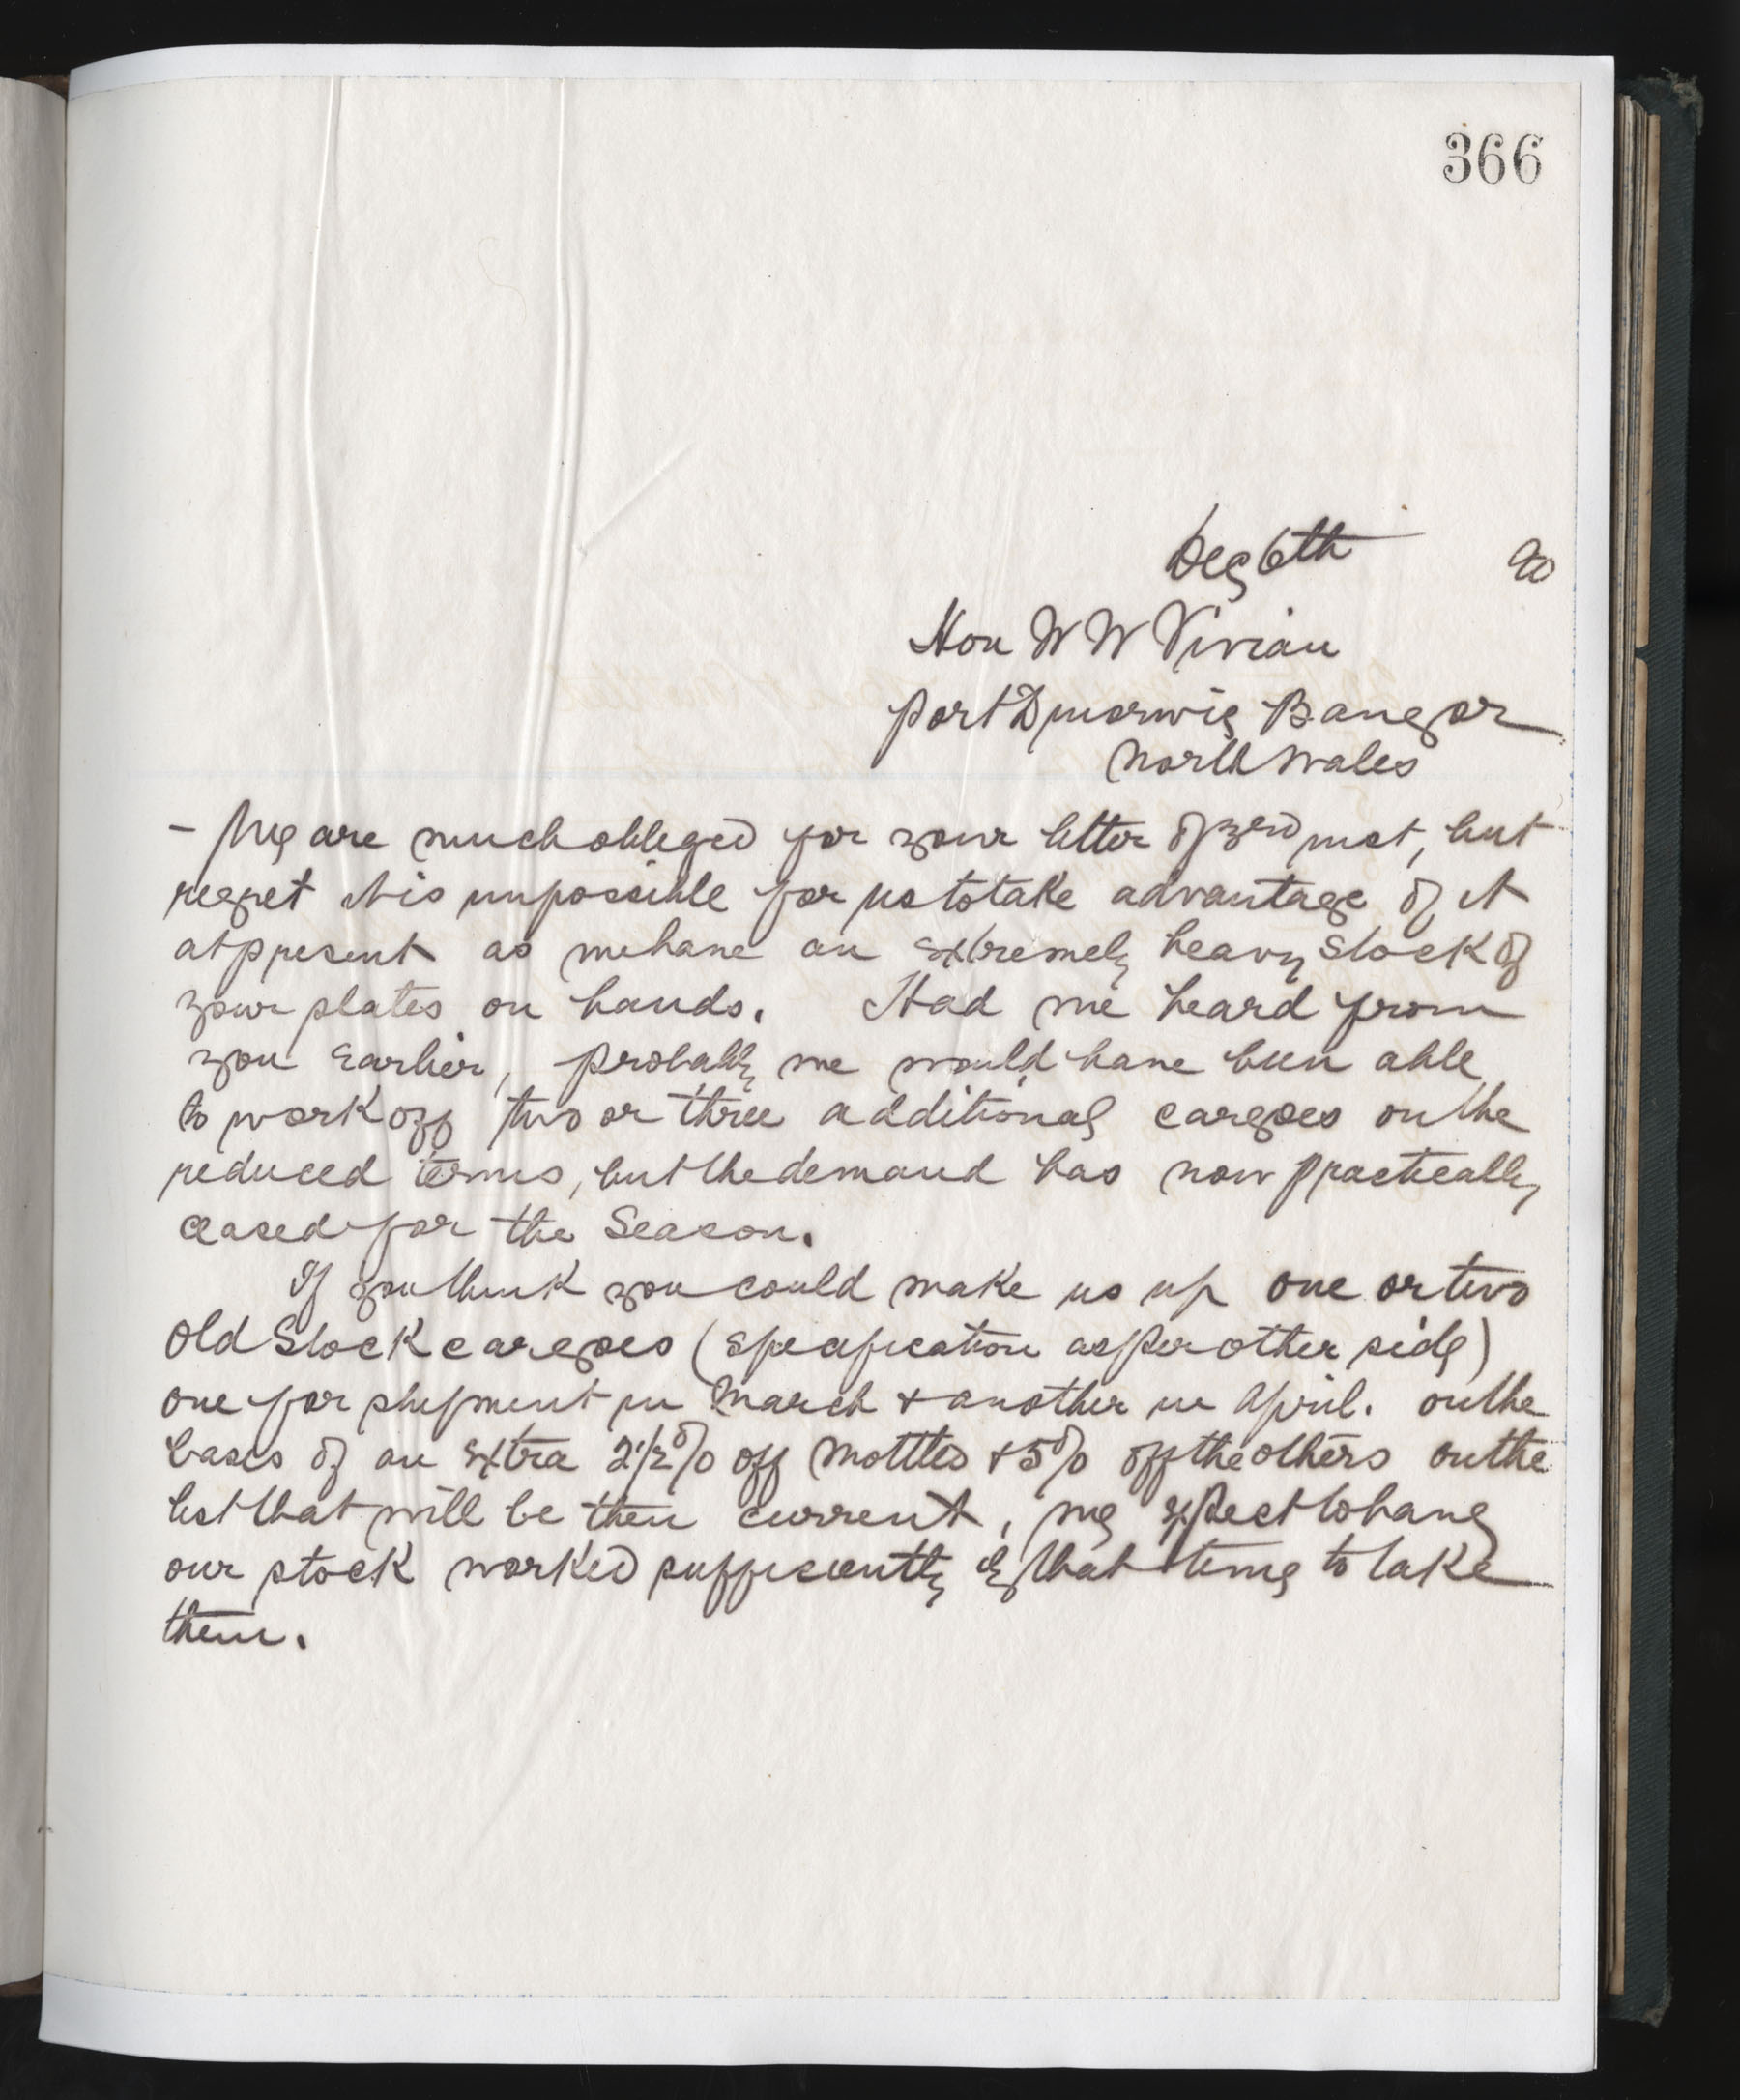 366
Dec 6th 90
Hon W W Vivian
Port Dinorwic Bangor
North Wales
- We are much obliged for your letter of 3rd inst, but
regret it is impossible for us to take advantage of it
at present as we have an extremely heavy stock of
your plates on hands. Had we heard from
you earlier, probably we would have been able
to work off two or three additional cargoes on the
reduced terms, but the demand has now practically
ceased for the Season.
If you think you could make us up one or two
Old Stock cargoes (specification as per other side)
one for shipment in March + another in April. on the
basis of an extra 2 1/2 % off Mottles + 5% off the others on the
list that will be then current, we expect to have
our stock worked sufficiently by that time to take
them.